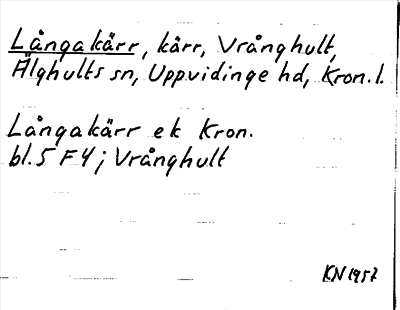 Långakärr, kärr, Vrånghult,
Älghults sn, Uppvidinge hd, Kron. l.
Långakärr ek Kron.
bl. 5 F 4; Vrånghult
KN 1957